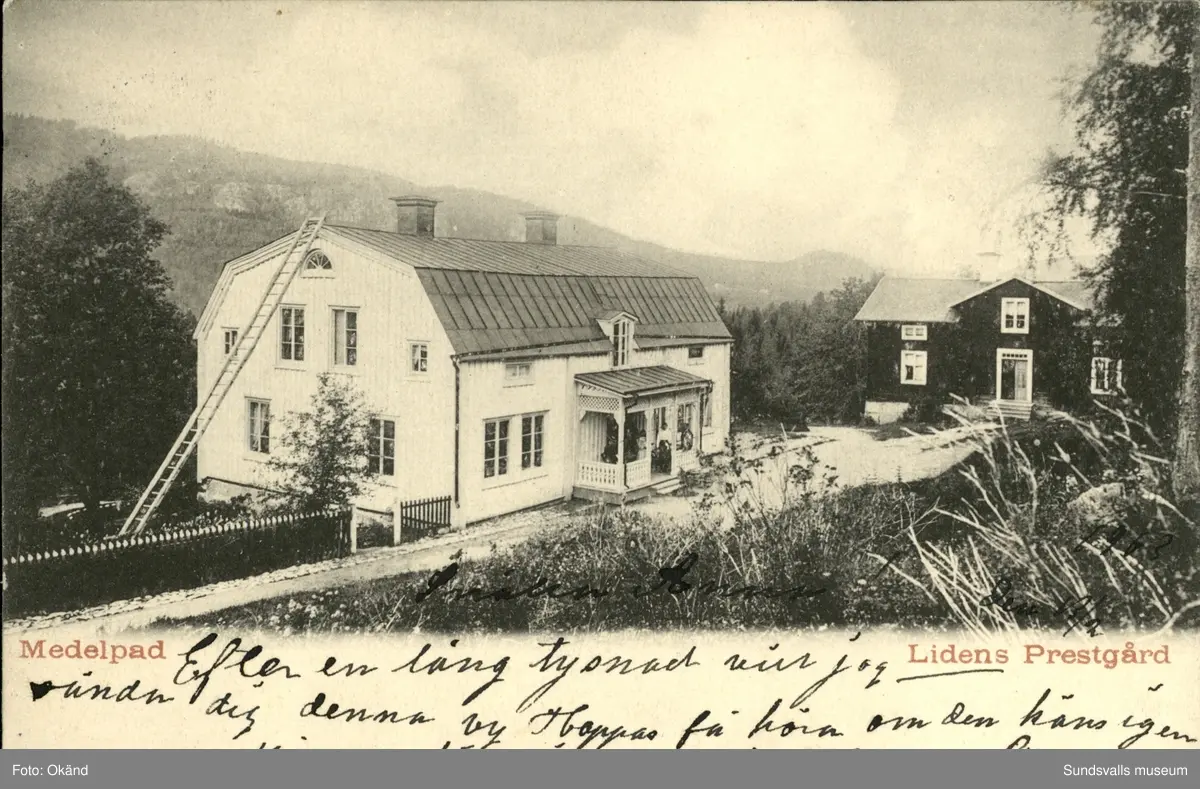 1903
Snälla Anna
den 12/2
Medelpad
Lidens Prestgård
Efter en lång tysnad vill jag
sända dig denna vy Hoppas få höra om den käns igen
Foto: Okänd
Sundsvalls museum